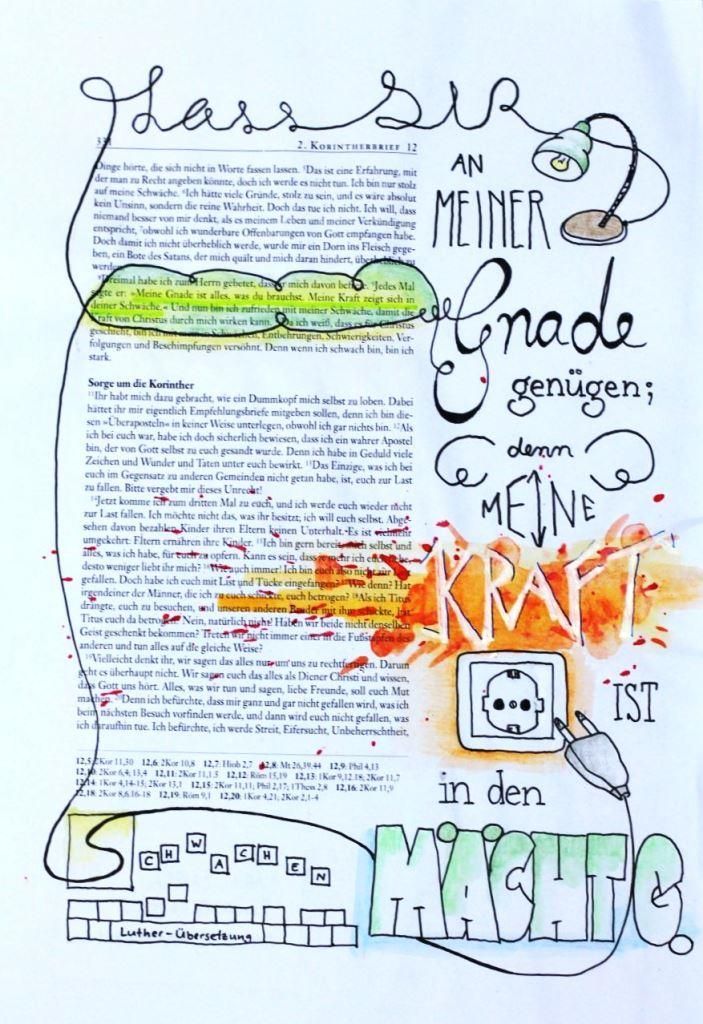 Lass DIR
AN
MEINER
Gnade
genügen;
denn
MEINE
KRAFT
IST
in den
SCHWACHEN
MÄCHTIG.
Luther-Übersetzung
331 2. KORINTHERBRIEF 12
Dinge hörte, die sich nicht in Worte fassen lassen. ⁵Das ist eine Erfahrung, mit
der man zu Recht angeben könnte, doch ich werde es nicht tun. Ich bin nur stolz
auf meine Schwäche. ⁶Ich hätte viele Gründe, stolz zu sein, und es wäre absolut
kein Unsinn, sondern die reine Wahrheit. Doch das tue ich nicht. Ich will, dass
niemand besser von mir denkt, als es meinem Leben und meiner Verkündigung
entspricht, ⁷obwohl ich wunderbare Offenbarungen von Gott empfangen habe.
Doch damit ich nicht überheblich werde, wurde mir ein Dorn ins Fleisch gege-
ben, ein Bote des Satans, der mich quält und mich daran hindert, überheblich zu
werden.
⁸Dreimal habe ich zum Herrn gebetet, dass er mich davon befreie. ⁹Jedes Mal
sagte er: »Meine Gnade ist alles, was du brauchst. Meine Kraft zeigt sich in
deiner Schwäche.« Und nun bin ich zufrieden mit meiner Schwäche, damit die
Kraft von Christus durch mich wirken kann. Da ich weiß, dass es für Christus
geschieht, bin ich mit meinen Schwächen, Entbehrungen, Schwierigkeiten, Ver-
folgungen und Beschimpfungen versöhnt. Denn wenn ich schwach bin, bin ich
stark.
Sorge um die Korinther
¹¹Ihr habt mich dazu gebracht, wie ein Dummkopf mich selbst zu loben. Dabei
hättet ihr mir eigentlich Empfehlungsbriefe mitgeben sollen, denn ich bin die-
sen »Überaposteln« in keiner Weise unterlegen, obwohl ich gar nichts bin. ¹²Als
ich bei euch war, habe ich doch sicherlich bewiesen, dass ich ein wahrer Apostel
bin, der von Gott selbst zu euch gesandt wurde. Denn ich habe in Geduld viele
Zeichen und Wunder und Taten unter euch bewirkt. ¹³Das Einzige, was ich bei
euch im Gegensatz zu anderen Gemeinden nicht getan habe, ist, euch zur Last
zu fallen. Bitte vergebt mir dieses Unrecht!
¹⁴Jetzt komme ich zum dritten Mal zu euch, und ich werde euch wieder nicht
zur Last fallen. Ich möchte nicht das, was ihr besitzt; ich will euch selbst. Abge-
sehen davon bezahlen Kinder ihren Eltern keinen Unterhalt. Es ist vielmehr
umgekehrt: Eltern ernähren ihre Kinder. ¹⁵Ich bin gern bereit, mich selbst und
alles, was ich habe, für euch zu opfern. Kann es sein, dass je mehr ich euch liebe,
desto weniger liebt ihr mich? ¹⁶Wie auch immer! Ich bin euch also nicht zur Last
gefallen. Doch habe ich euch mit List und Tücke eingefangen? ¹⁷Wie denn? Hat
irgendeiner der Männer, die ich zu euch schickte, euch betrogen? ¹⁸Als ich Titus
drängte, euch zu besuchen, und unseren anderen Bruder mit ihm schickte, hat
Titus euch da betrogen? Nein, natürlich nicht! Haben wir beide nicht denselben
Geist geschenkt bekommen? Treten wir nicht immer einer in die Fußstapfen des
anderen und tun alles auf die gleiche Weise?
¹⁹Vielleicht denkt ihr, wir sagen das alles nur, um uns zu rechtfertigen. Darum
geht es überhaupt nicht. Wir sagen euch das alles als Diener Christi und wissen,
dass Gott uns hört. Alles, was wir tun und sagen, liebe Freunde, soll euch Mut
machen. ²⁰Denn ich befürchte, dass mir ganz und gar nicht gefallen wird, was ich
beim nächsten Besuch vorfinden werde, und dann wird euch nicht gefallen, was
ich daraufhin tue. Ich befürchte, ich werde Streit, Eifersucht, Unbeherrschtheit,
12,5: 2Kor 11,30 12,6: 2Kor 10,8 12,7: Hiob 2,7 12,8: Mt 26,39.44 12,9: Phil 4,13
12,10: 2Kor 6,4; 13,4 12,11: 2Kor 11,1.5 12,12: Röm 15,19 12,13: 1Kor 9,12.18; 2Kor 11,7
12,14: 1Kor 4,14-15; 2Kor 13,1 12,15: 2Kor 11,11; Phil 2,17; 1Thess 2,8 12,16: 2Kor 11,9
12,18: 2Kor 8,6.16-18 12,19: Röm 9,1 12,20: 1Kor 4,21; 2Kor 2,1-4